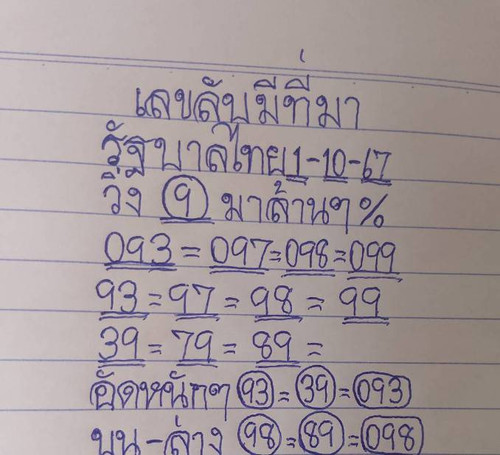 เลขลับมีที่มา
รัฐบาลไทย 1-10-67
วิ่ง 9 มาล้านๆ%
093 = 097 = 098 = 099
93 = 97 = 98 = 99
39 = 79 = 89 =
อัดหนักๆ 93 = 39 = 093
บน - ล่าง 98 = 89 = 098